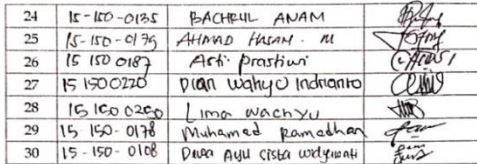 24 15-150-0135 BACHRUL ANAM
25 15-150-0175 AHMAD HASAN. M
26 15 150 0187 Arti prastiwi
27 15 150 0220 Dian wahyu Indrianto
28 15 150 0250 Lima wachyu
29 15-150-0178 Muhamad Ramadhan
30 15-150-0108 Ayu cista